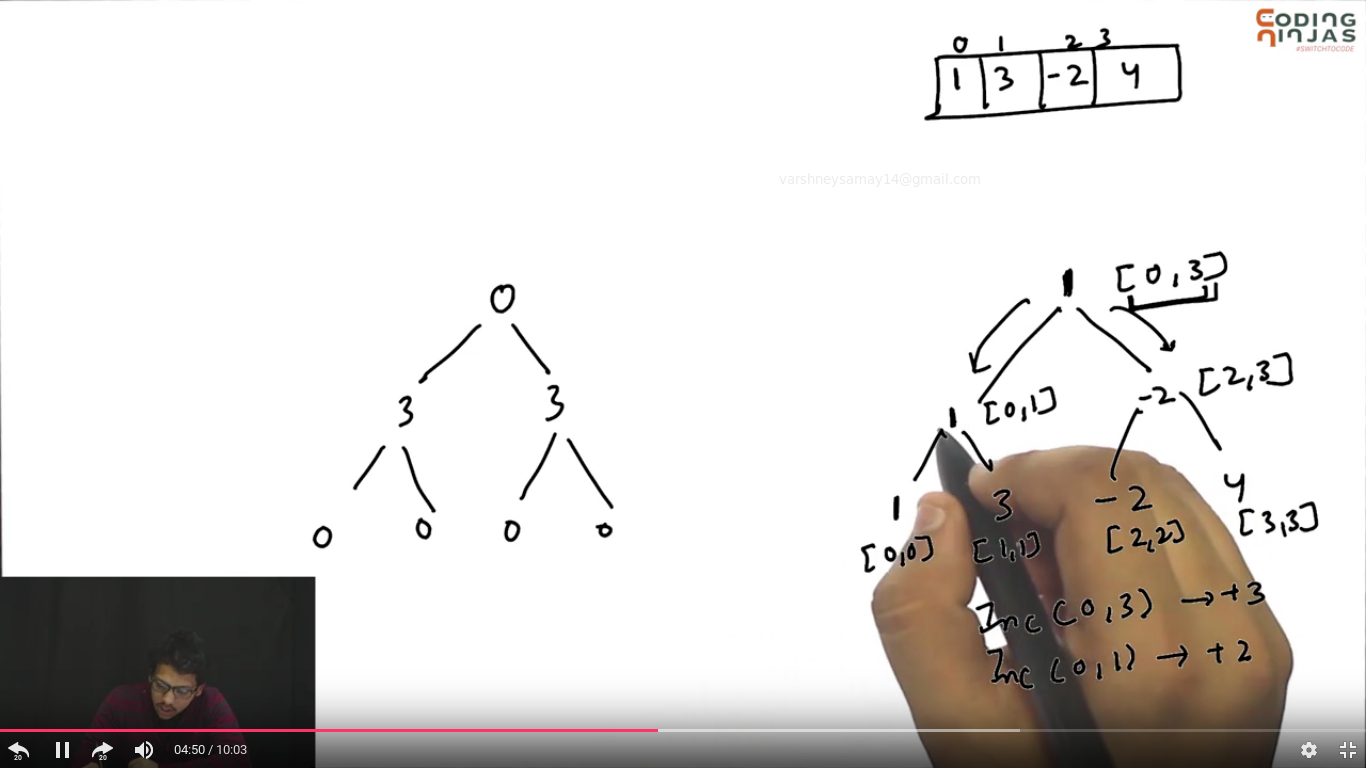 CODING
NINJAS
#SWITCHTOCODE
0 1 2 3
1 3 -2 4
varshneysamay14@gmail.com
0
3 3
0 0 0 0
1 [0,3]
1 [0,1] -2 [2,3]
1 3 -2 4
[0,0] [1,1] [2,2] [3,3]
Inc (0,3) → +3
Inc (0,1) → +2
20 20 04:50 / 10:03